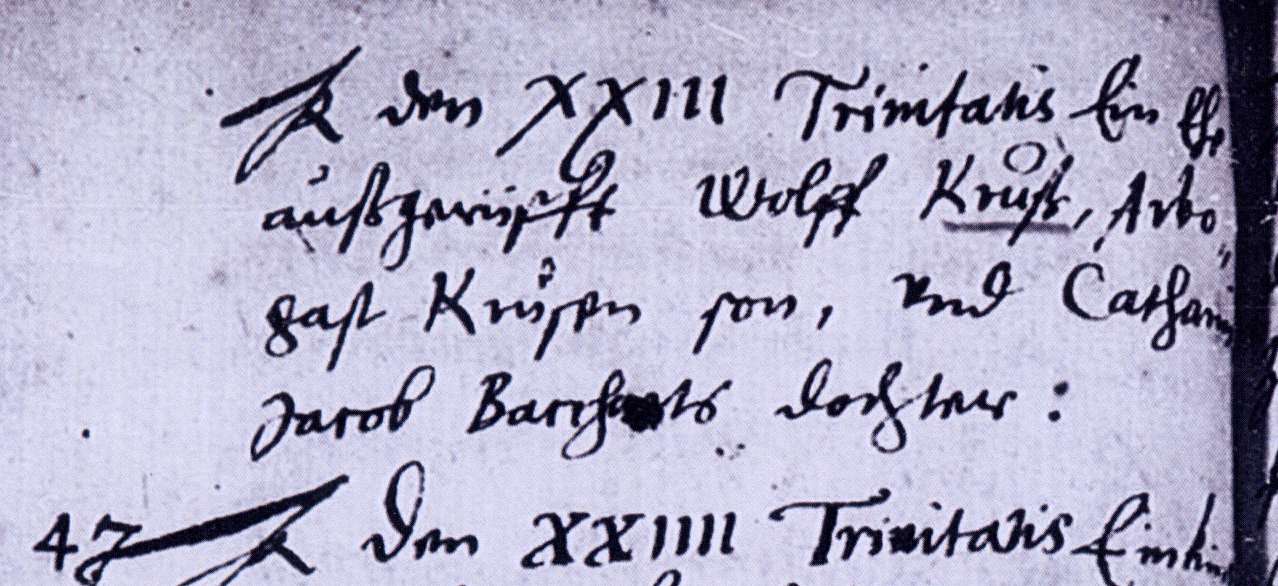 A den XXIII Trinitatis Ein Ehe
außgerüefft Wolff Kruß, Arbo„
gast Krusen son, vnd Catharin
Jacob Barchats dochter:
47 A Den XXIIII Trinitatis Ein kin